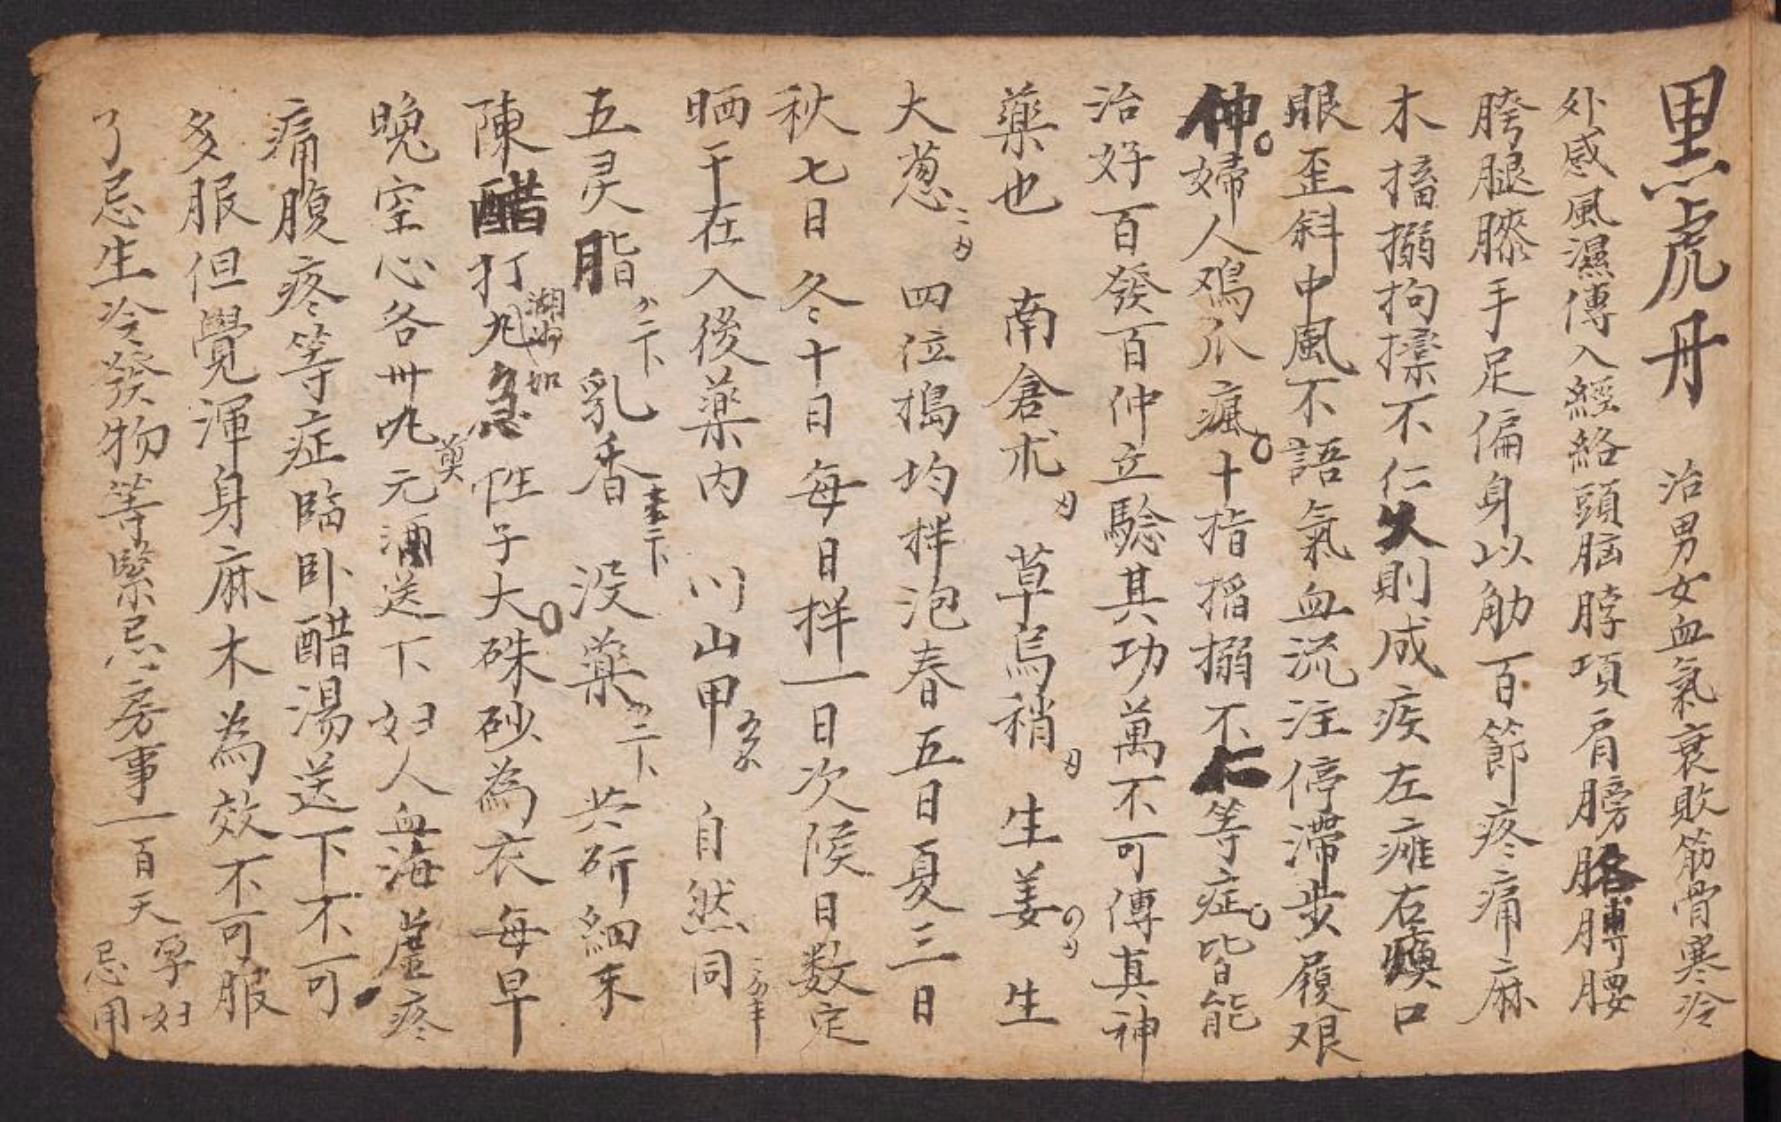 黑虎丹 治男女血氣衰敗筋骨寒冷
外感風濕傳入經絡頭脑脖項肩膀胳膊腰
胯腿膝手足偏身以肋百節疼痛麻
木搐搦拘攣不仁久則成疾左癱右瘓口
眼歪斜中風不語氣血流注停滯步履艰
仲婦人鸡爪瘋十指搐搦不仁等症皆能
治好百發百仲立驗其功萬不可傳真神
藥也 南倉朮 草烏稍 生姜 生
大葱 四位搗均拌泡春五日夏三日
秋七日冬十日每日拌一日次候日数定
晒干在入後藥内 川山甲 自然同
五灵脂 乳香 没藥 共研細末
陳醋打湖為丸如急性子大硃砂為衣每早
晚空心各卅丸元酒送下妇人血海虛疼
痛腹疼等症臨卧醋湯送下不可
多服但覺渾身麻木為效不可服
了忌生冷發物等緊忌房事一百天 孕妇
忌用